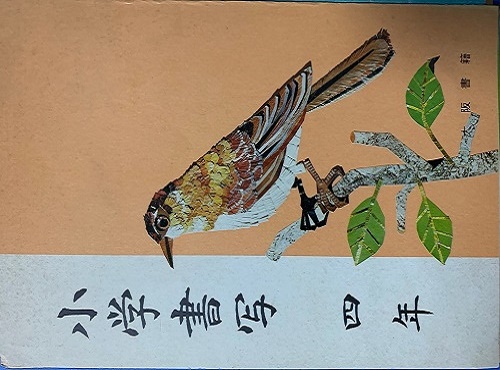 小学書写 四年
大阪書籍